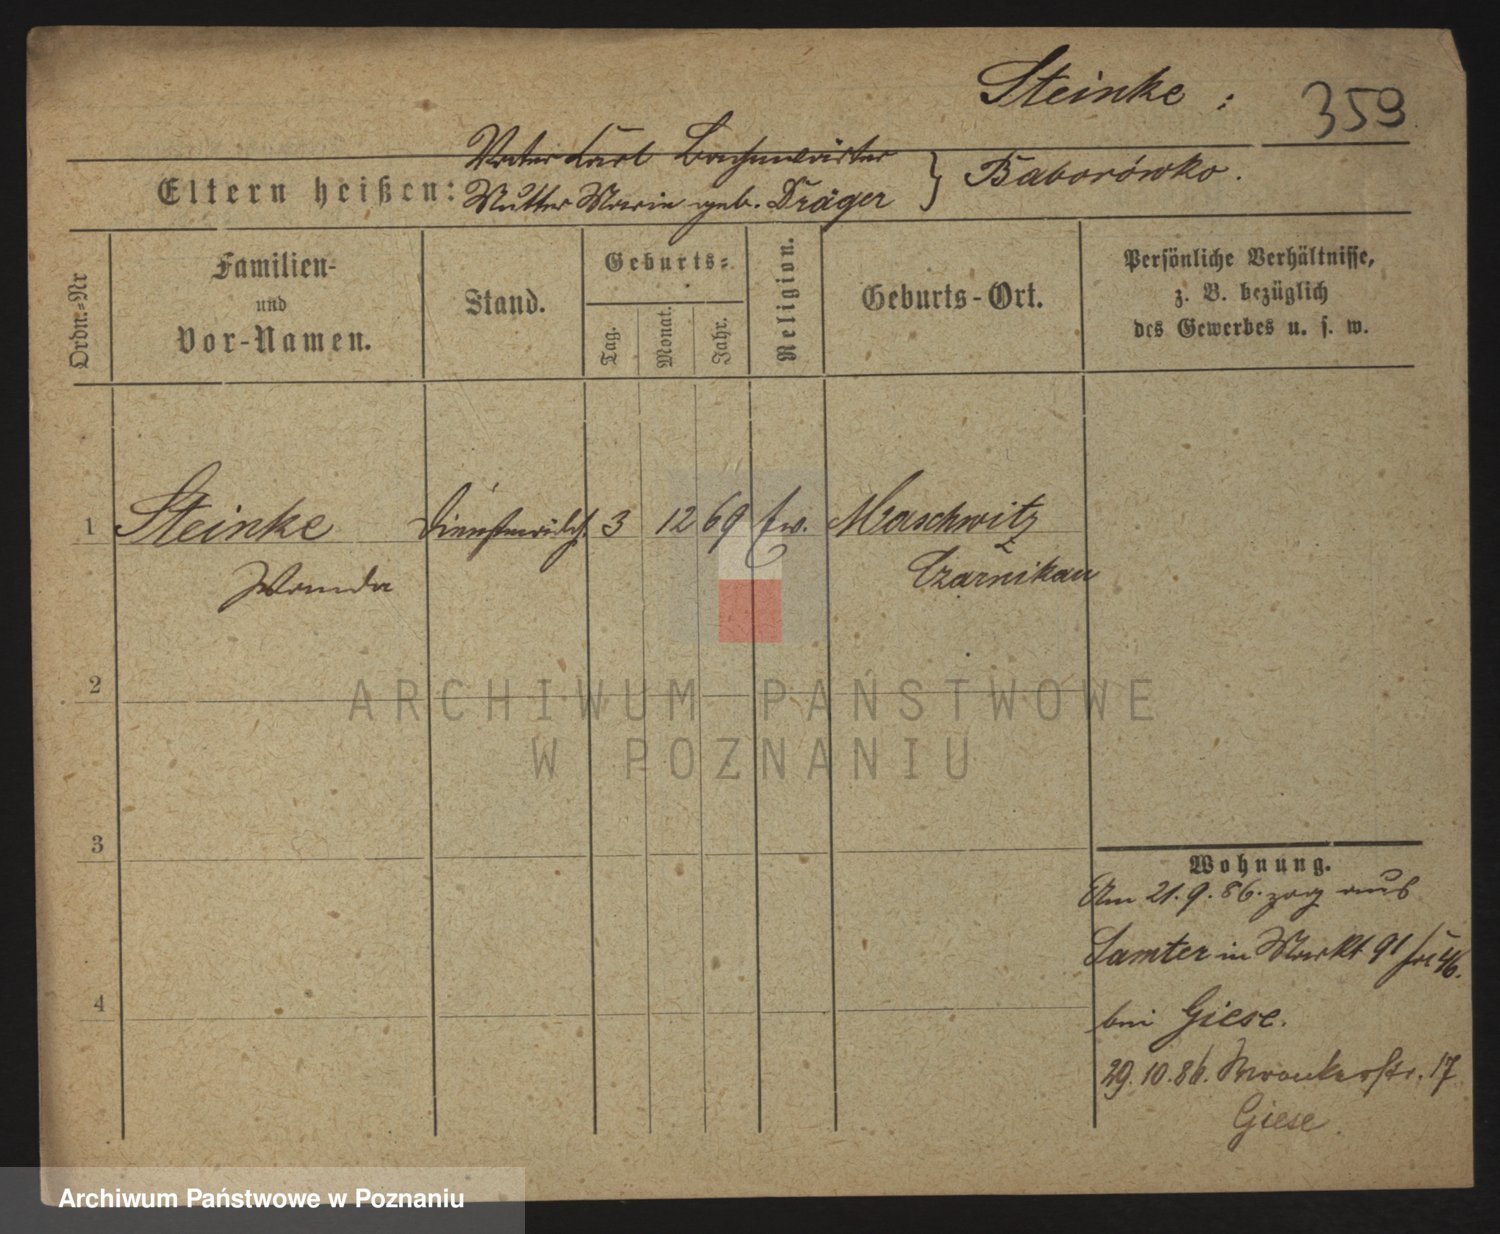 Steinke : 359
Vater Carl Bahnwärter
Eltern heißen: Mutter Marie geb. Dräger } Baborówko.
Ordn.-Nr
Familien-
und
Vor-Namen.
Stand.
Geburts-
Tag.
Monat.
Jahr.
Religion.
Geburts-Ort.
Persönliche Verhältnisse,
z. B. bezüglich
des Gewerbes u. s. w.
1 Steinke 3 12 69 ev. Maschwitz
Wanda Czarnikau
2
3
4
Wohnung.
Am 21.9.86. zog aus
Samter in Markt 91
bei Giese.
29.10.86. Wronkerstr. 17
Giese.
ARCHIWUM PAŃSTWOWE
W POZNANIU
Archiwum Państwowe w Poznaniu